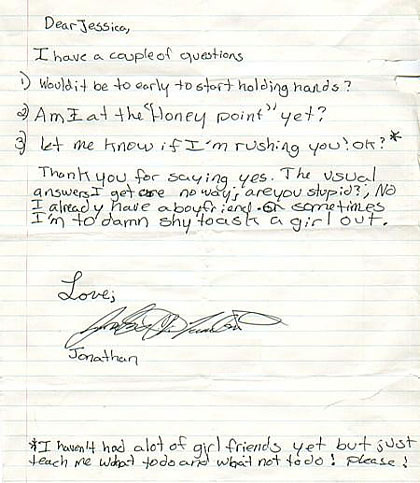 Dear Jessica,
I have a couple of questions
1) Would it be to early to start holding hands?
2) Am I at the "Honey point" yet?
3) Let me know if I'm rushing you! ok?*
Thank you for saying yes. The usual
answers I get are no way; are you stupid?, No
I already have a boyfriend. or sometimes
I'm to damn shy to ask a girl out.
Love;
Jonathan
*I haven't had alot of girl friends yet but just
teach me what to do and what not to do! please!